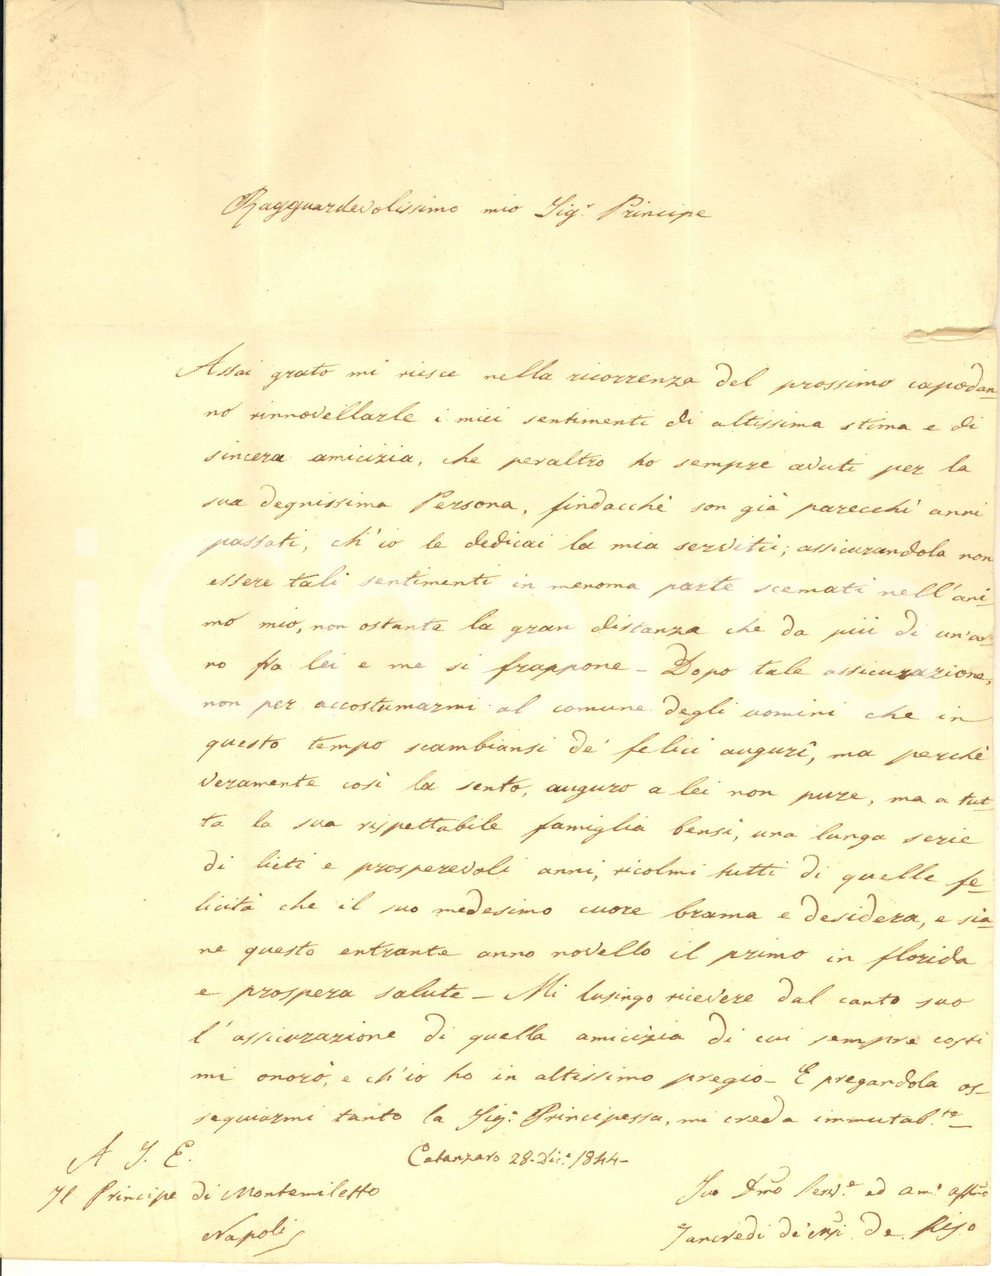 Ragguardevolissimo mio Sig.r Principe
Assai grato mi riesce nella ricorrenza del prossimo capodan=
no rinnovellarle i miei sentimenti di altissima stima e di
sincera amicizia, che peraltro ho sempre avuti per la
sua degnissima Persona, findacchè son già parecchi anni
passati, ch'io le dedicai la mia servitù; assicurandola non
essere tali sentimenti in menoma parte scemati nell'ani=
mo mio, non ostante la gran distanza che da più di un'an=
no fra lei e me si frappone – Dopo tale assicurazione,
non per accostumarmi al comune degli uomini che in
questo tempo scambiansi de' felici augurî, ma perchè
veramente così la sento, auguro a lei non pure, ma a tut=
ta la sua rispettabile famiglia bensì, una lunga serie
di lieti e prosperevoli anni, ricolmi tutti di quelle fe=
licità che il suo medesimo cuore brama e desidera, e sia=
ne questo entrante anno novello il primo in florida
e prospera salute – Mi lusingo ricevere dal canto suo
l'assicurazione di quella amicizia di cui sempre costì
mi onorò, e ch'io ho in altissimo pregio – E pregandola os=
sequiarmi tanto la Sig.a Principessa, mi creda immutab.te
Catanzaro 28. Dic.e 1844 –
A S. E.
Il Principe di Montemiletto
Napoli
Suo Dmo Serv.e ed am.o affmo
Tancredi de' de Riso
iCharta